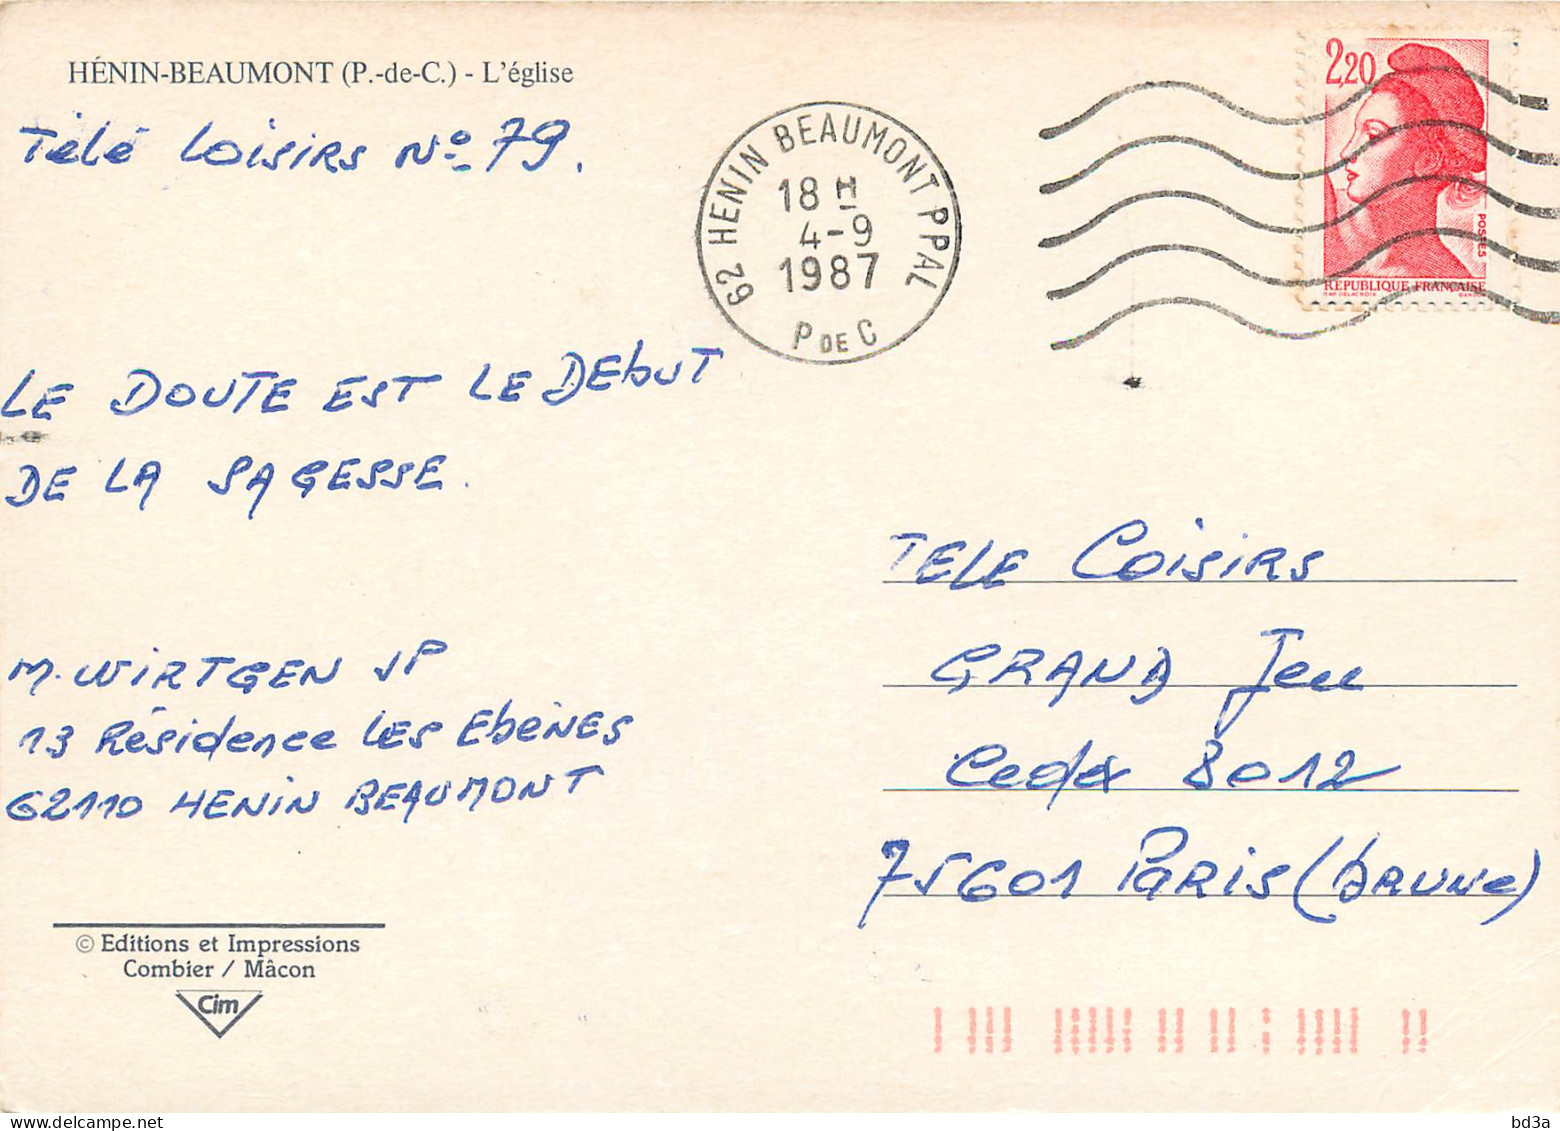 HÉNIN-BEAUMONT (P.-de-C.) - L'église
Télé Loisirs No 79.
62 HENIN BEAUMONT PPAL
18 H
4-9
1987
P DE C
2,20
POSTES
REPUBLIQUE FRANÇAISE
LE DOUTE EST LE DEbUT
DE LA SAGESSE.
M. WIRTGEN JP
13 Résidence LES EbèNES
62110 HENIN BEAUMONT
TELE Loisirs
GRAND Jeu
Cedex 8012
75601 PARIS (brune)
© Editions et Impressions
Combier / Mâcon
Cim
bd3a